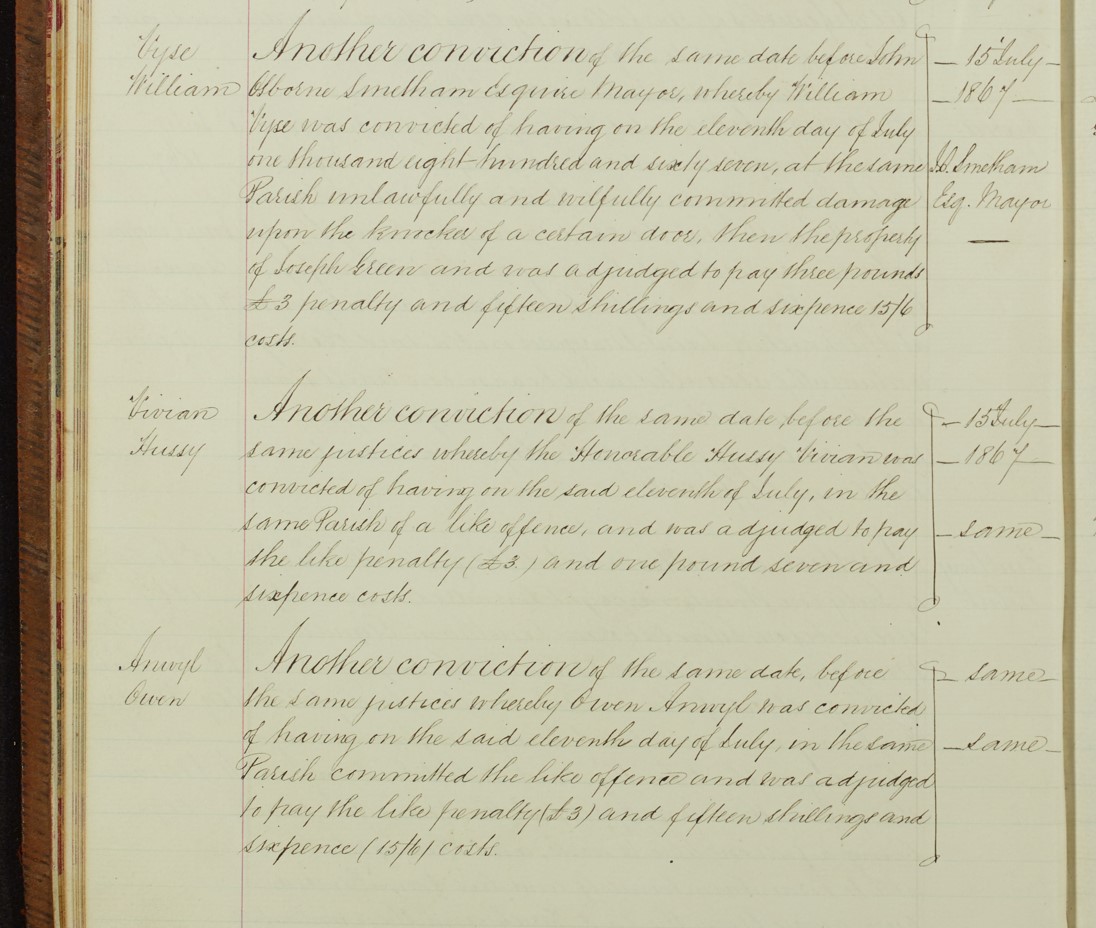 Vyse
William
Another conviction of the same date before John
Osborne Smetham Esquire Mayor, whereby William
Vyse was convicted of having on the eleventh day of July
one thousand eight hundred and sixty seven, at the same
Parish unlawfully and wilfully committed damage
upon the knocked of a certain door, then the property
of Joseph Green and was adjudged to pay three pounds
£3 penalty and fifteen shillings and sixpence 15/6
costs.
— 15 July —
— 1867 —
J.O. Smetham
Esq. Mayor
Vivian
Hussy
Another conviction of the same date, before the
same justices whereby the Honorable Hussy Vivian was
convicted of having on the said eleventh of July, in the
same Parish of a like offence, and was adjudged to pay
the like penalty (£3) and one pound seven and
sixpence costs.
— 15 July —
— 1867 —
— same —
Anwyl
Owen
Another conviction of the same date, before
the same justices whereby Owen Anwyl was convicted
of having on the said eleventh day of July, in the same
Parish committed the like offence and was adjudged
to pay the like penalty (£3) and fifteen shillings and
sixpence (15/6) costs.
— same —
— same —